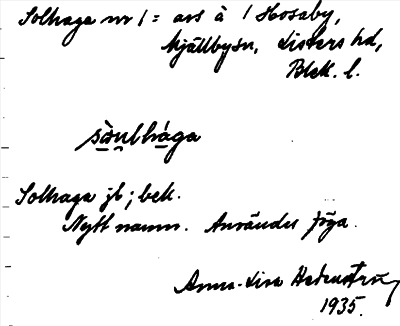 Solhaga nr 1 = avs å 1 Hosaby,
Mjällbysn, Listers hd,
Blek. l.
sòulhàga
Solhaga jb; bek.
Nytt namn. Användes föga.
Anna-Lisa
1935.